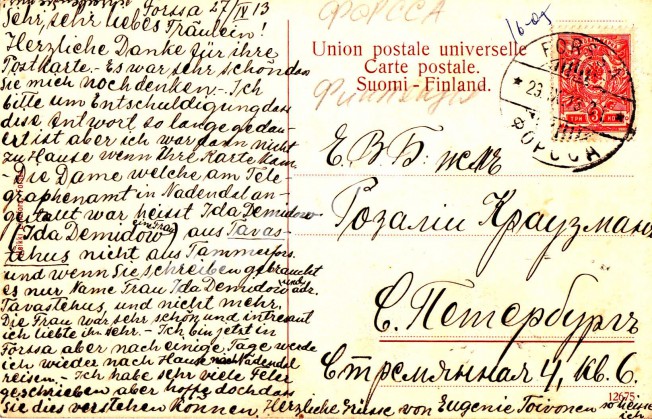 Forssa 27/IV 13
Sehr, sehr liebes Fräulein!
Herzliche Danke für ihre
Postkarte. - Es war sehr schön dass
sie mich noch denken. - Ich
bitte um Entschuldigung dass
dise Antwort so lange gedau-
ert ist aber ich war dann nicht
zu Hause wenn Ihre Karte kam
- Die Dame welche am Tele
graphenamt in Nådendal an-
gestallt war heisst Ida Demidow
(Ida Demidow) aus Tavas-
tehus nicht aus Tammerfors.
und wenn Sie schreiben gebraucht
es nur Name Frau Ida Demidow und adr.
Tavastehus, und nicht mehr.
Die Frau war sehr schön und intresant
ich liebte ihr sehr. - Ich bin jetzt in
Forssa aber nach einige Tage werde
ich wieder nach Hause nach Nådendal
reisen. - Ich habe sehr viele Feler
geschrieben aber hoffe doch dass
Sie dies verstehen können. Herzliche Grüsse von Eugenie Toivonen
ФОРССА
Union postale universelle
Carte postale.
Suomi - Finland.
Финляндія
FORSSA
ФОРССА
ТРИ 3 КОП
Е В Б: жмъ
Розаліи Краузманъ
С. Петербургъ
Стремянная 4, кв. 6.
12675